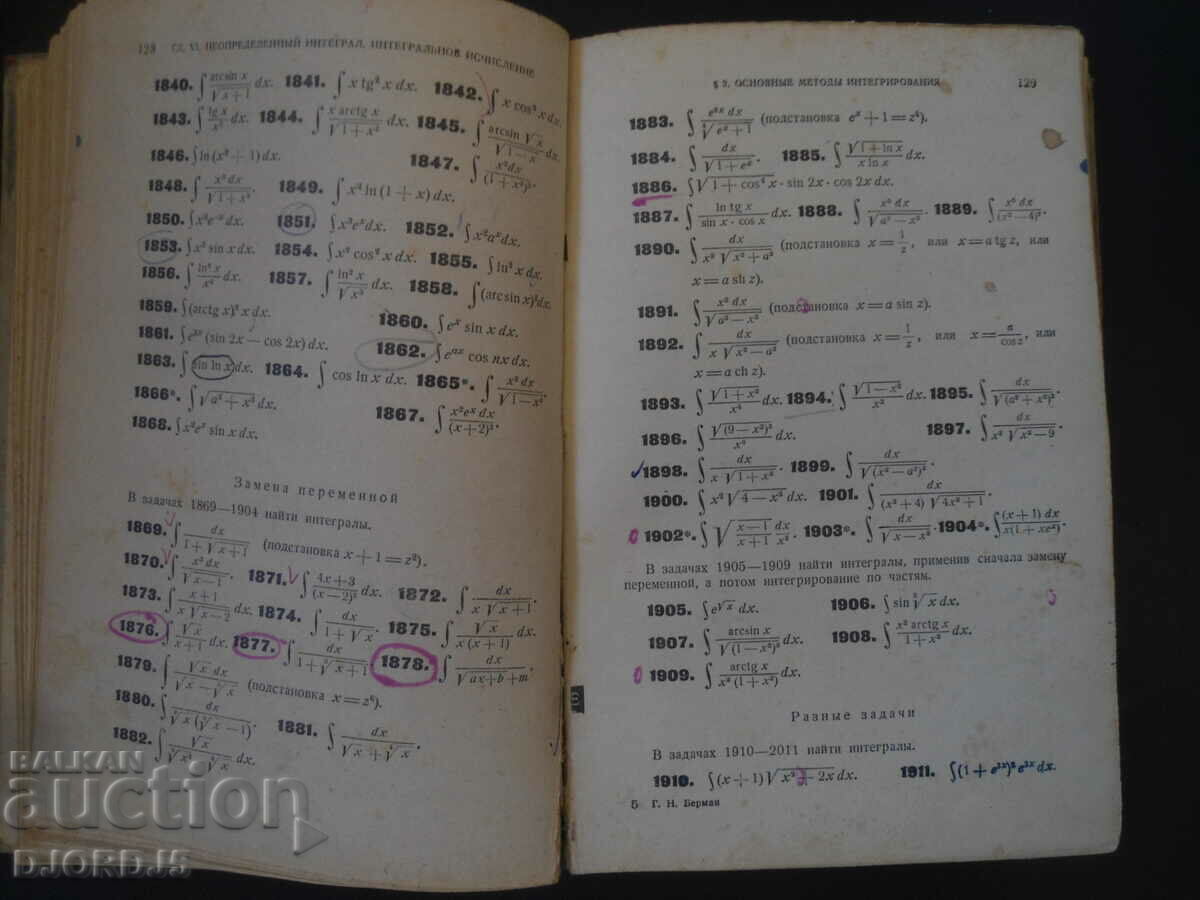 128 ГЛ. VI. НЕОПРЕДЕЛЕННЫЙ ИНТЕГРАЛ. ИНТЕГРАЛЬНОЕ ИСЧИСЛЕНИЕ
1840. ∫ arcsin x/√(x+1) dx. 1841. ∫ x tg² x dx. 1842. ∫ x cos² x dx.
1843. ∫ dx. 1844. ∫ x arctg x/√(1+x²) dx. 1845. ∫ arcsin √x/√(1−x) dx.
1846. ∫ ln (x²+1) dx. 1847. ∫ x² dx/(1+x²)².
1848. ∫ x² dx/√(1+x²). 1849. ∫ x² ln (1+x) dx.
1850. ∫ dx. 1851. ∫ x³eˣ dx. 1852. ∫ x²aˣ dx.
1853. ∫ sin x dx. 1854. ∫ x² cos² x dx. 1855. ∫ ln³ x dx.
1856. ∫ dx. 1857. ∫ dx. 1858. ∫ (arcsin x)² dx.
1859. ∫ (arctg x)² x dx. 1860. ∫ eˣ sin x dx.
1861. ∫ (sin 2x − cos 2x) dx. 1862. ∫ eᵃˣ cos nx dx.
1863. ∫ sin ln x dx. 1864. ∫ cos ln x dx. 1865*. ∫ x² dx/√(1−x²).
1866*. ∫ √(a²+x²) dx. 1867. ∫ x²eˣ dx/(x+2)².
1868. ∫ x²eˣ sin x dx.
Замена переменной
В задачах 1869—1904 найти интегралы.
1869. ∫ dx/(1+√(x+1)) (подстановка x+1=z²).
1870. ∫ x³ dx/√(x−1). 1871. ∫ (4x+3)/(x−2)³ dx. 1872. ∫ dx/(x√(x+1)).
1873. ∫ (x+1)/(x√(x−2)) dx. 1874. ∫ dx/(1+√x). 1875. ∫ √x/(x(x+1)) dx.
1876. ∫ √x/(x+1) dx. 1877. ∫ dx/(1+∛(x+1)). 1878. ∫ dx/(√(ax+b)+m).
1879. ∫ √x dx/(√x−∛x) (подстановка x=z⁶).
1880. ∫ dx/(∛x(∛x−1)). 1881. ∫ dx/(√x+∜x).
1882. ∫ dx.
§ 2. ОСНОВНЫЕ МЕТОДЫ ИНТЕГРИРОВАНИЯ 129
1883. ∫ e²ˣ dx/∜(eˣ+1) (подстановка eˣ+1=z⁴).
1884. ∫ dx/√(1+eˣ). 1885. ∫ √(1+ln x)/(x ln x) dx.
1886. ∫ √(1+cos² x)·sin 2x·cos 2x dx.
1887. ∫ ln tg x/(sin x·cos x) dx. 1888. ∫ x⁵ dx/√(a²−x²). 1889. ∫ x⁵ dx/(x²−4)².
1890. ∫ dx/(x²√(x²+a²)) (подстановка x=1/z, или x=a tg z, или
x=a sh z).
1891. ∫ x² dx/√(a²−x²) (подстановка x=a sin z).
1892. ∫ dx/(x√(x²−a²)) (подстановка x=1/z, или x=a/cos z, или
x=a ch z).
1893. ∫ √(1+x²)/x⁴ dx. 1894. ∫ √(1−x²)/x² dx. 1895. ∫ dx/√(a²+x²)³.
1896. ∫ √(9−x²)³/x⁶ dx. 1897. ∫ dx/(x²√(x²−9)).
1898. ∫ dx/(x√(1+x²)). 1899. ∫ dx/√(x²−a²)³.
1900. ∫ x²√(4−x²) dx. 1901. ∫ dx/((x²+4)√(4x²+1)).
1902*. ∫ √((x−1)/(x+1)) dx/x². 1903*. ∫ dx/√(x−x²). 1904*. ∫ (x+1) dx/(x(1+xeˣ)).
В задачах 1905—1909 найти интегралы, применив сначала замену
переменной, а потом интегрирование по частям.
1905. ∫ e^√x dx. 1906. ∫ sin ∛x dx.
1907. ∫ arcsin x/√(1−x²)³ dx. 1908. ∫ x² arctg x/(1+x²) dx.
1909. ∫ arctg x/(x²(1+x²)) dx.
Разные задачи
В задачах 1910—2011 найти интегралы.
1910. ∫ (x+1)√(x²+2x) dx. 1911. ∫ (1+e³ˣ)² e³ˣ dx.
5 Г. Н. Берман
BALKAN
auction
DJORDJ5